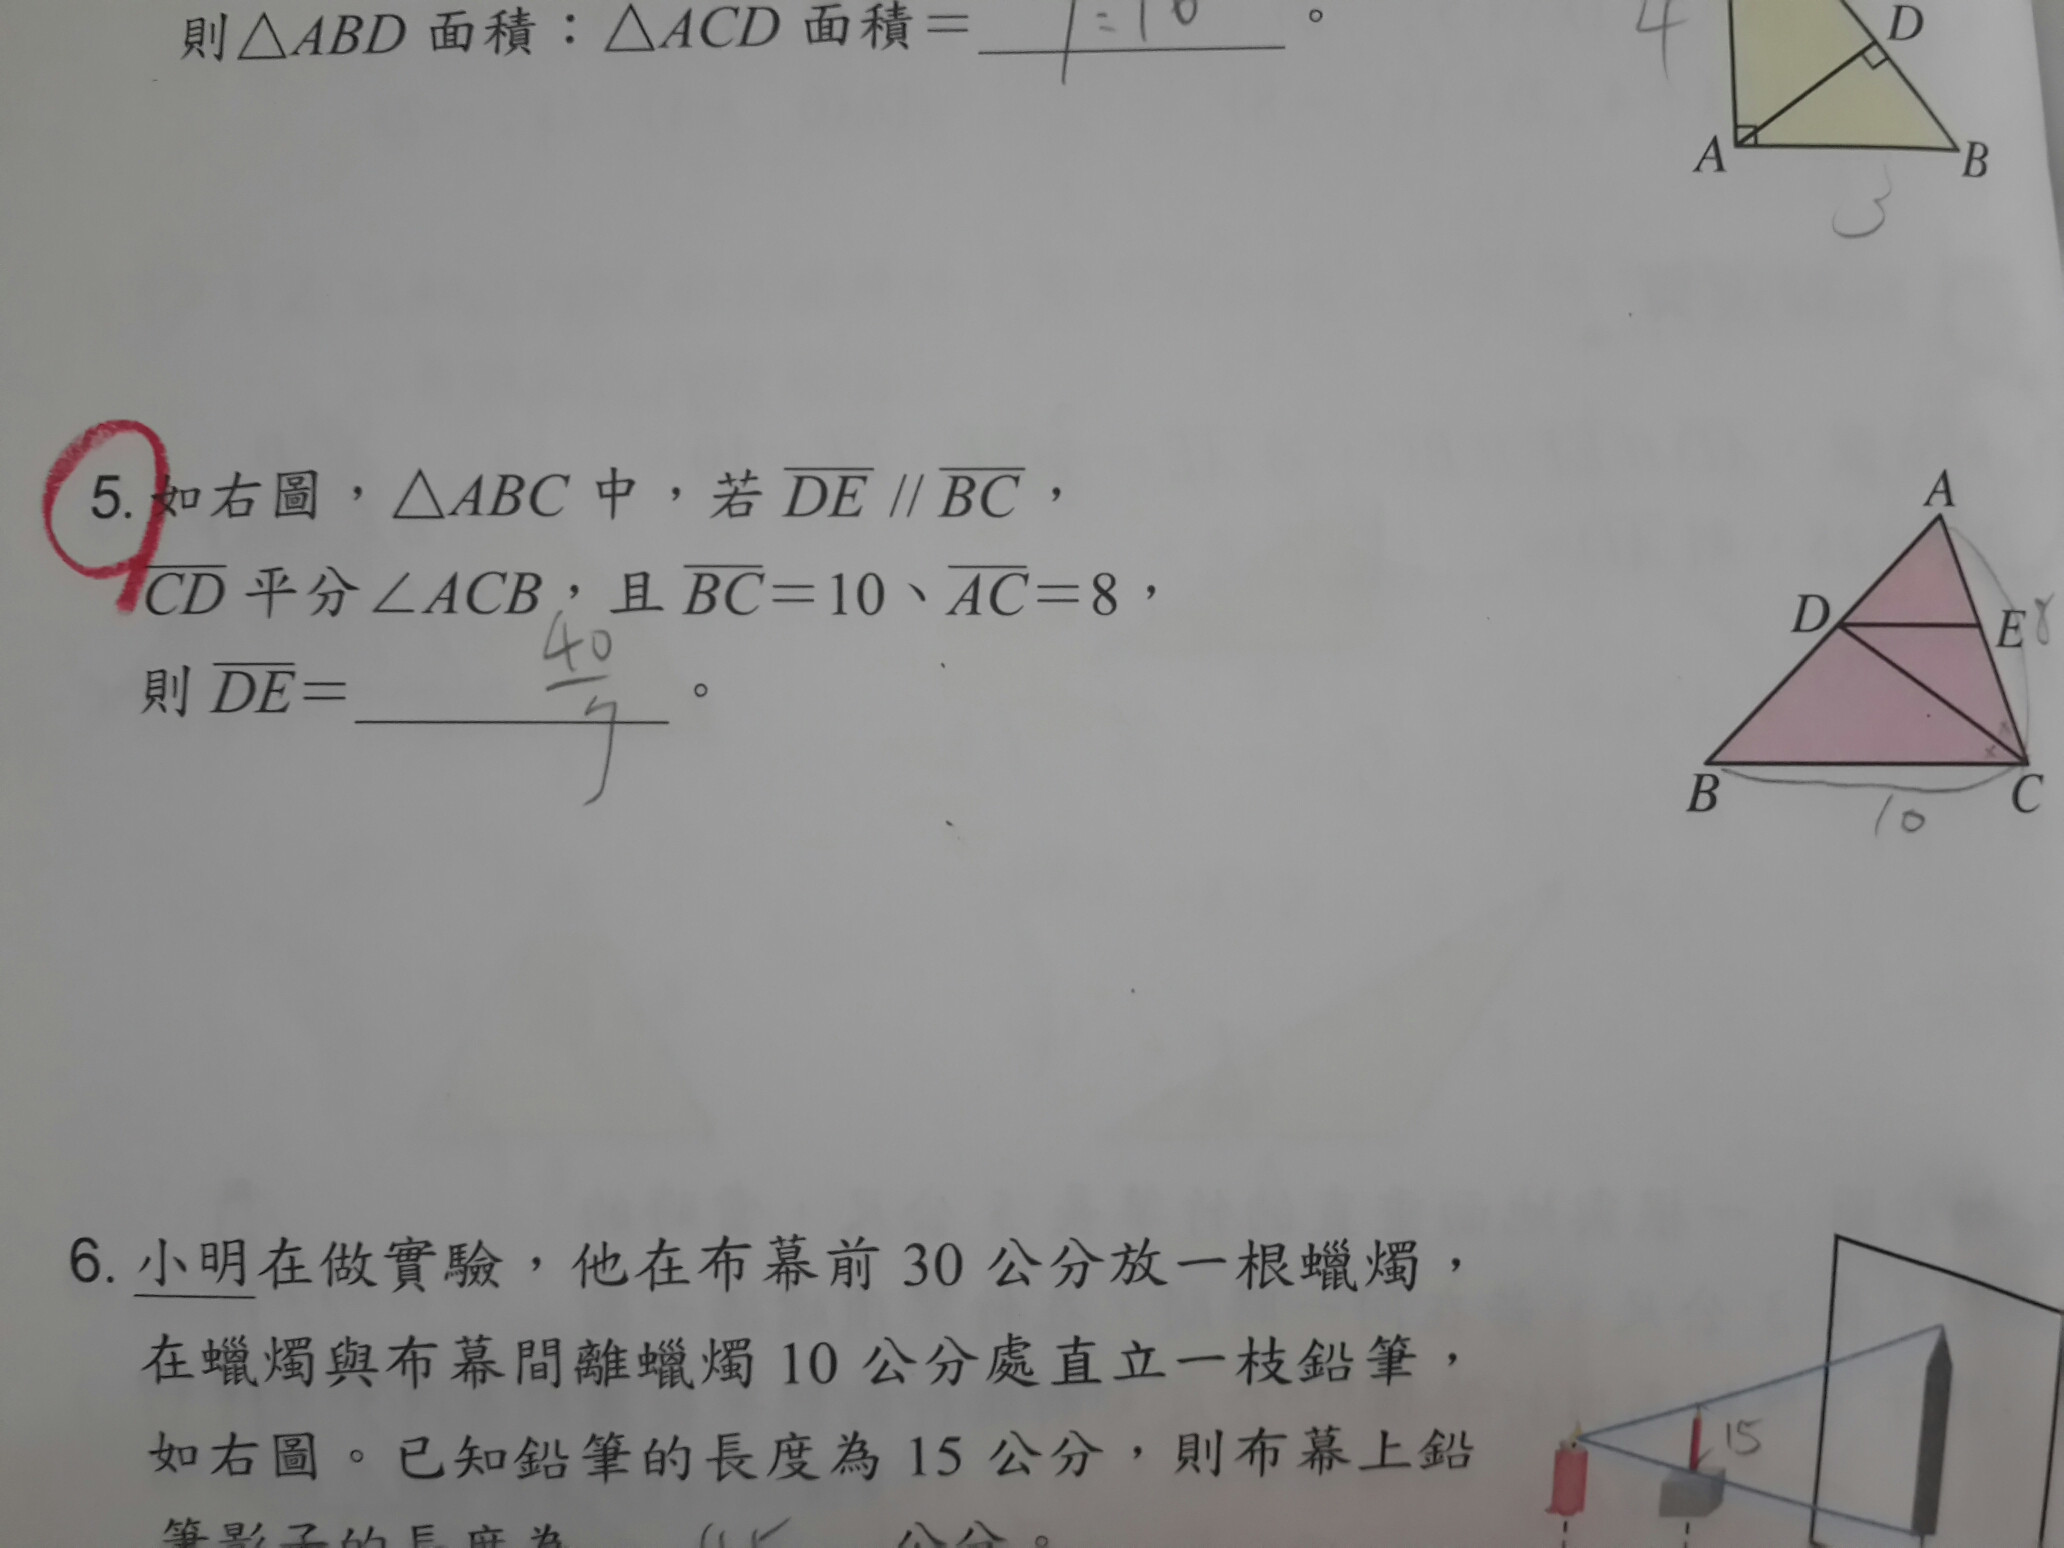 則△ABD 面積：△ACD 面積＝ 。
4
D
A
B
3
5. 如右圖，△ABC 中，若 DE // BC，
CD 平分∠ACB，且 BC＝10、AC＝8，
則 DE＝ 40/9 。
A
D
E
8
B
C
10
6. 小明在做實驗，他在布幕前 30 公分放一根蠟燭，
在蠟燭與布幕間離蠟燭 10 公分處直立一枝鉛筆，
如右圖。已知鉛筆的長度為 15 公分，則布幕上鉛
筆影子的長度為 公分。
15